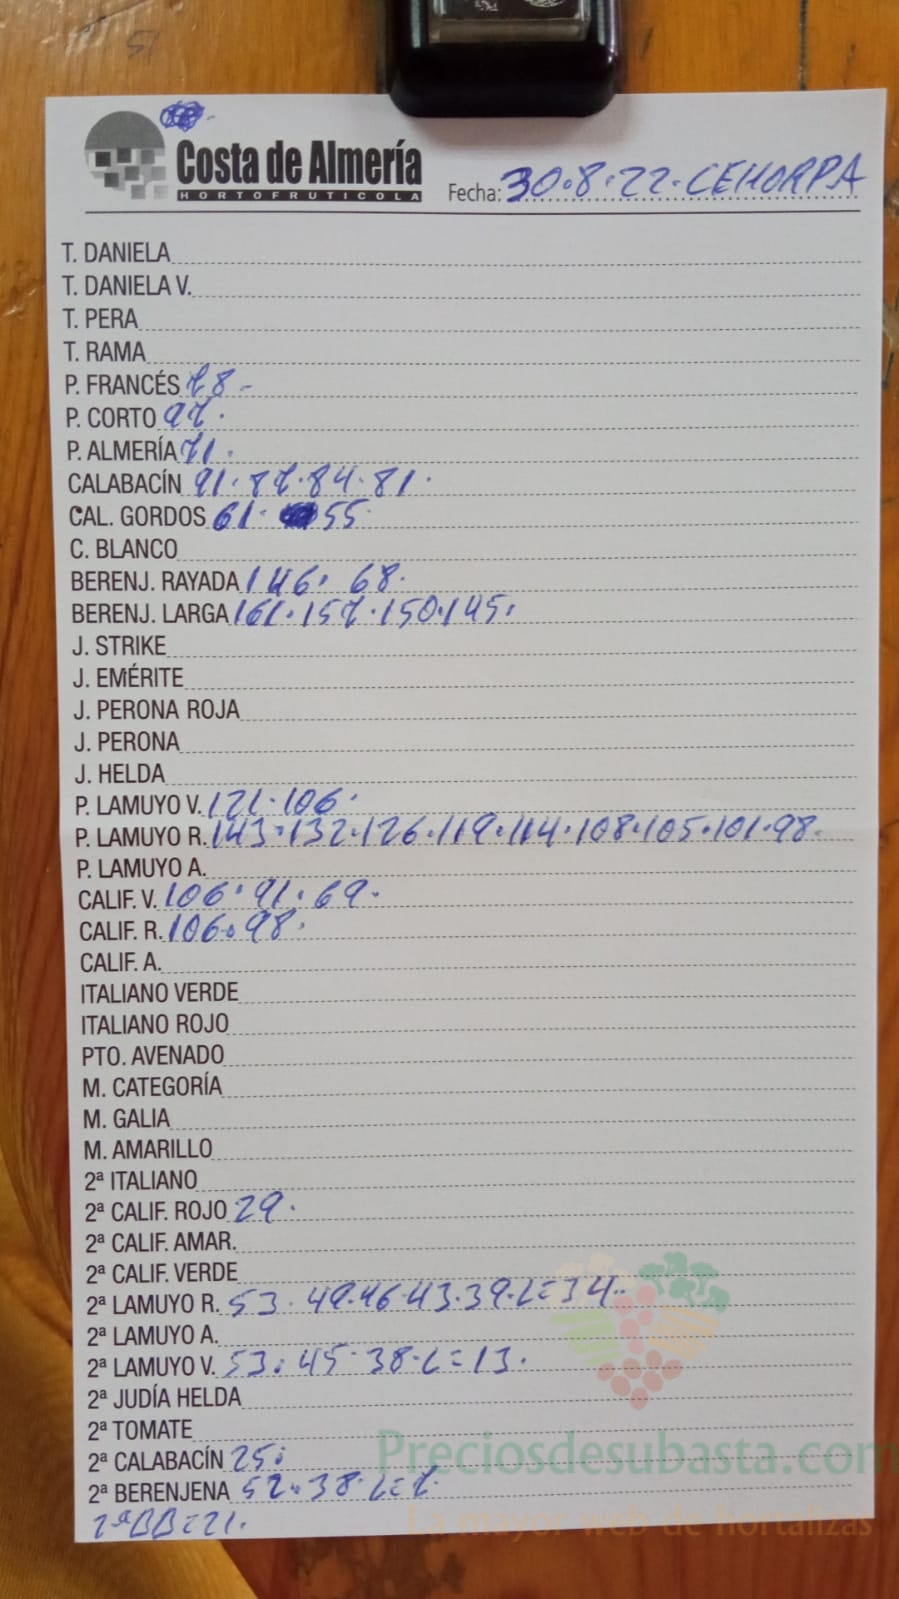 Costa de Almería
HORTOFRUTICOLA
Fecha: 30.8.22.CEHORPA
T. DANIELA
T. DANIELA V.
T. PERA
T. RAMA
P. FRANCÉS 78-
P. CORTO 97.
P. ALMERÍA 71.
CALABACÍN 91.87.84.81.
CAL. GORDOS 61. 55
C. BLANCO
BERENJ. RAYADA 146. 68.
BERENJ. LARGA 161.157.150.145.
J. STRIKE
J. EMÉRITE
J. PERONA ROJA
J. PERONA
J. HELDA
P. LAMUYO V. 121.106.
P. LAMUYO R. 143.132.126.119.114.108.105.101.98.
P. LAMUYO A.
CALIF. V. 106.91.69.
CALIF. R. 106.98.
CALIF. A.
ITALIANO VERDE
ITALIANO ROJO
PTO. AVENADO
M. CATEGORÍA
M. GALIA
M. AMARILLO
2ª ITALIANO
2ª CALIF. ROJO 29.
2ª CALIF. AMAR.
2ª CALIF. VERDE
2ª LAMUYO R. 53.49.46.43.39.L=34..
2ª LAMUYO A.
2ª LAMUYO V. 53.45.38.L=13.
2ª JUDÍA HELDA
2ª TOMATE
2ª CALABACÍN 25.
2ª BERENJENA 52.38.L=7.
2ªBB=21.
Preciosdesubasta.com
La mayor web de hortalizas